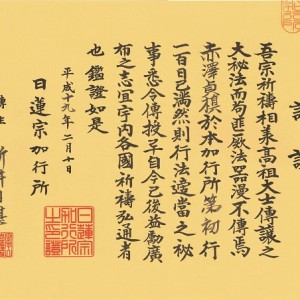 吾宗祈禱相承高祖大士傳讓之
大秘法而苟匪厥法器漫不傳焉
赤澤貞槙於本加行所第初行
一百日已満然則行法適當之秘
事悉令傳授予自今已後益勵廣
布之志宜宇内各國祈禱弘通者
也鑑證如是
平成十九年二月十日
日蓮宗加行所
傳主 新井日湛